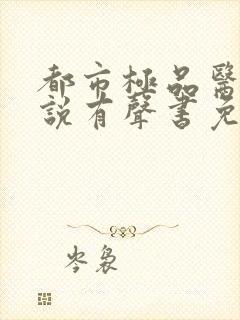 都市極品醫
說有聲書免
岑裊